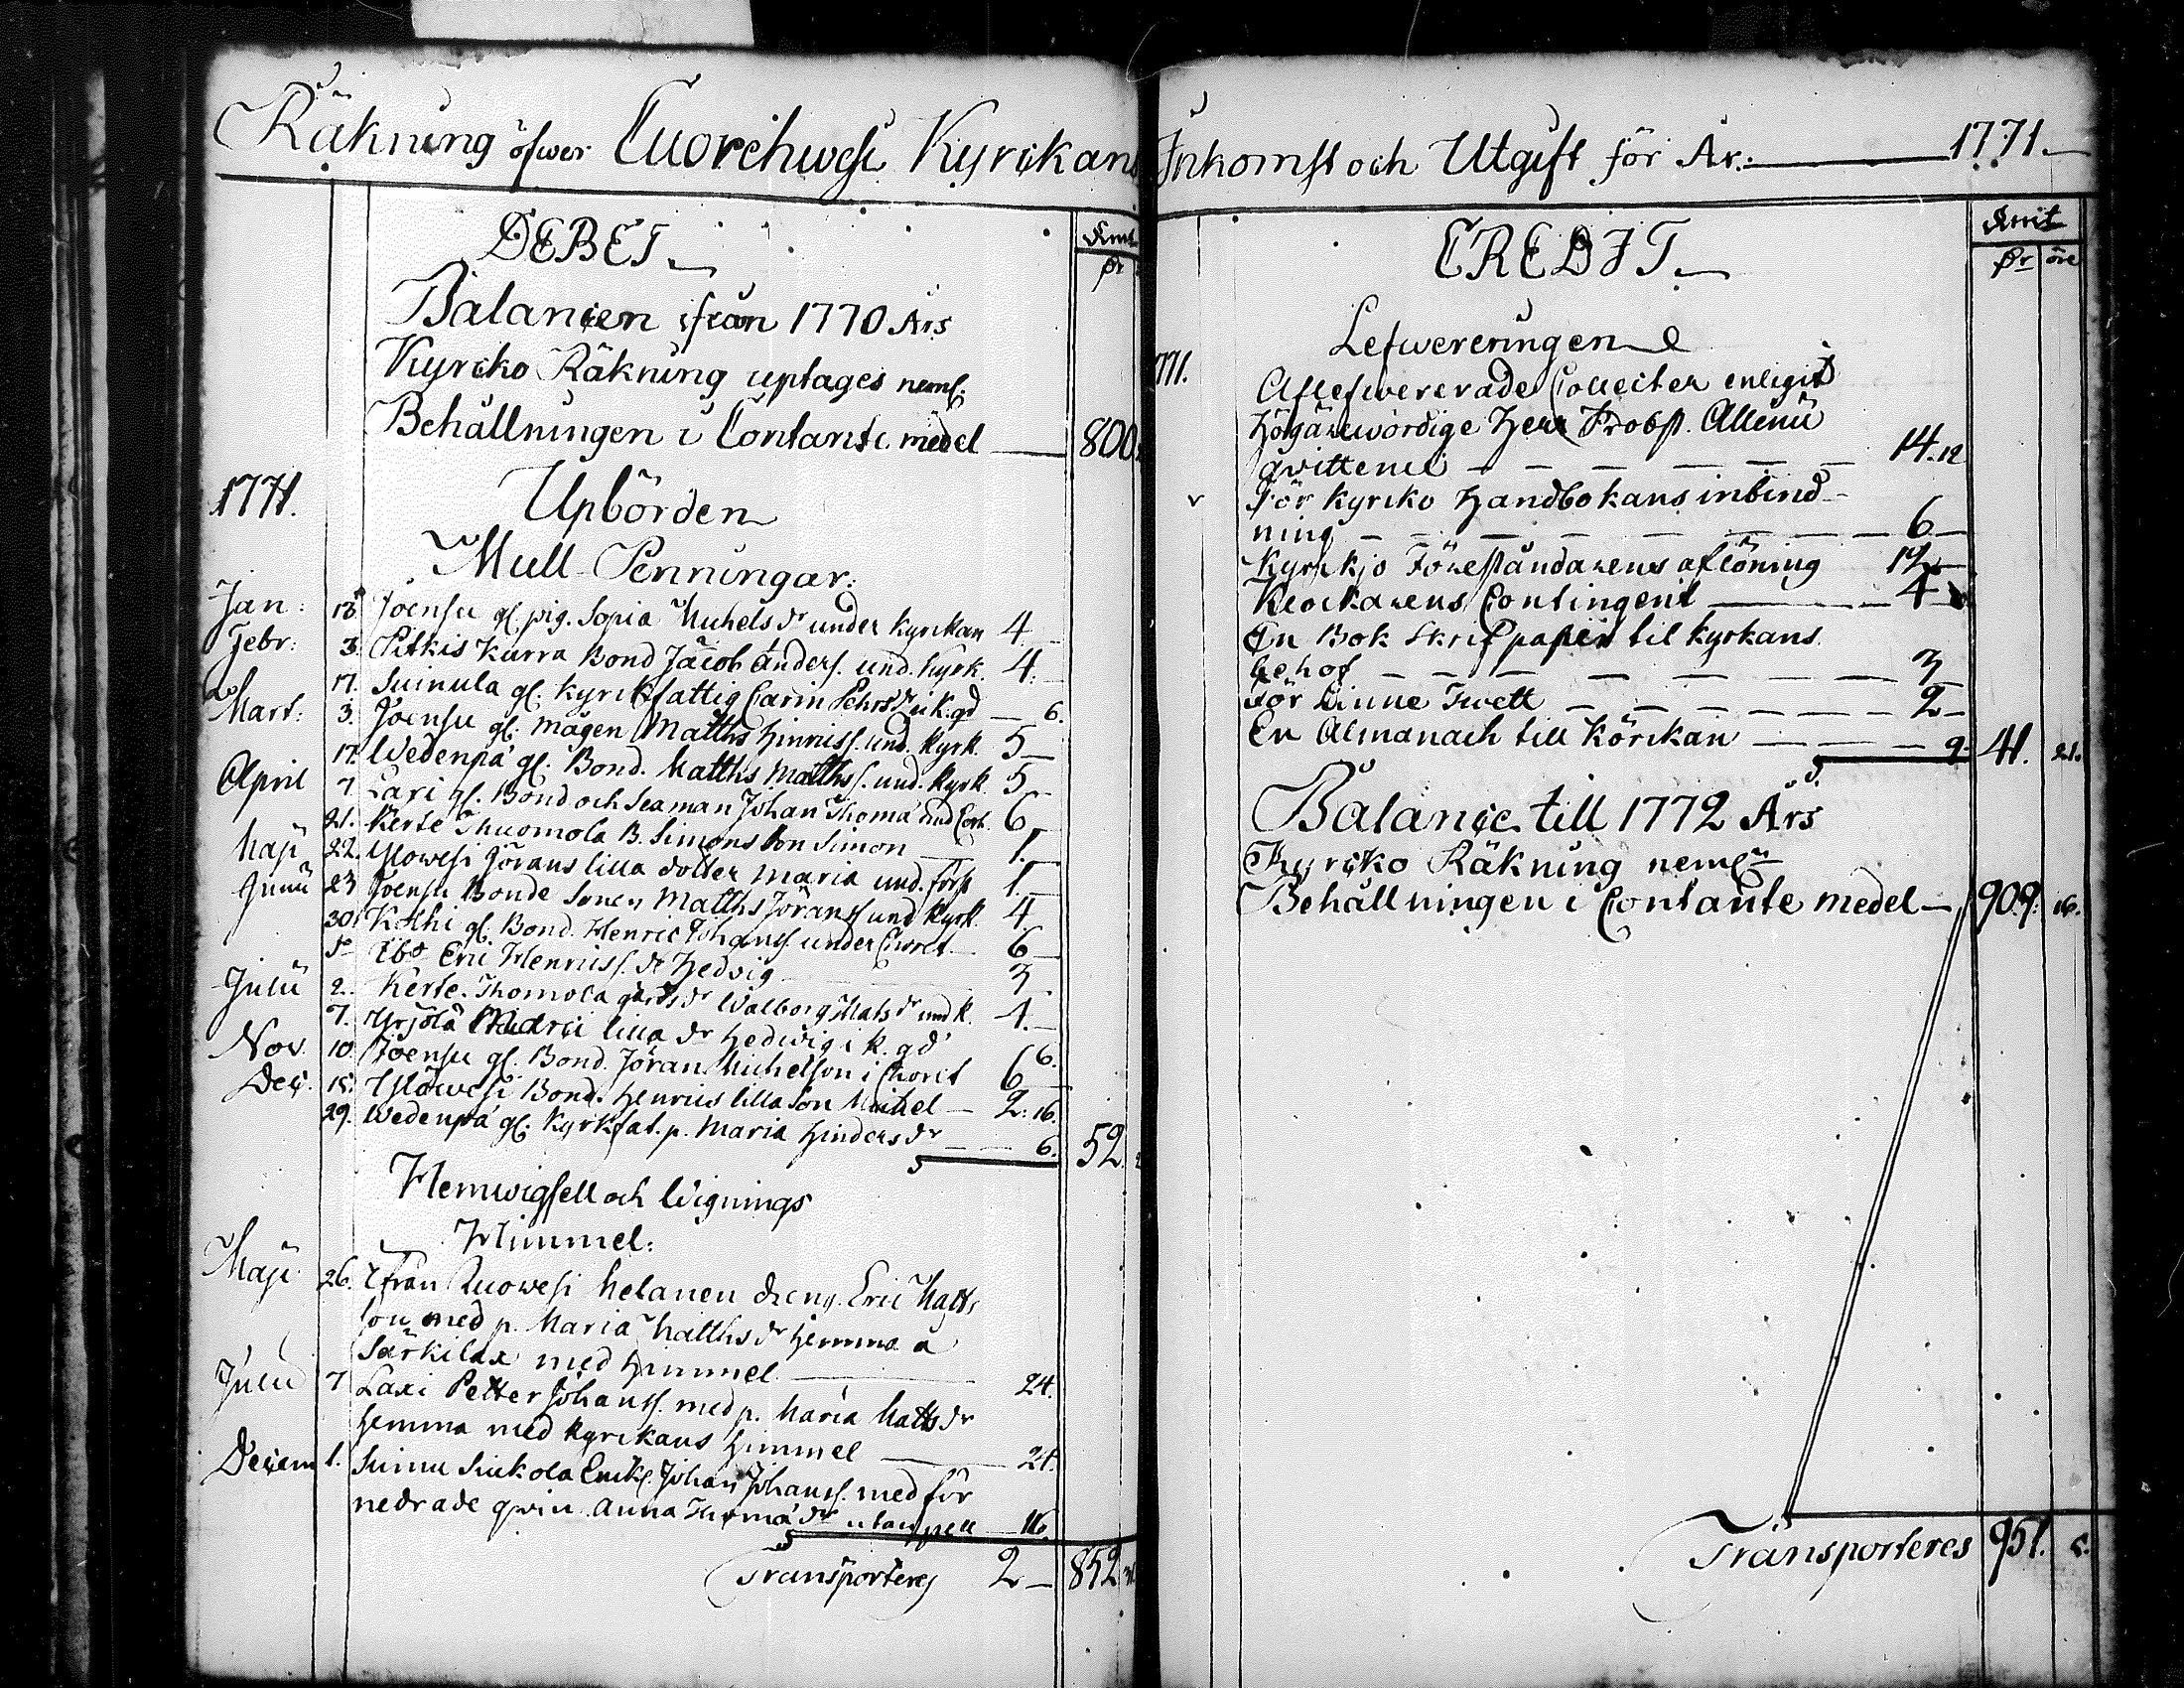 Räkning öfwer Cuorchwesi Kyrckans
DEBET
Kmt
Balancen ifrån 1770 Års
Kyrcko Räkning uptages neml:
Behållningen i Contante medel — 800
1771.
Upbörden
Mull-Penningar:
Jan: 13 Joensu gl. pig. Sopia Michels dr under kyrckan 4 —
Febr: 3. Pitkis Kurra Bond Jacob Anders. und. kyrk. 4: —
17. Suinula gl. kyrckfattig Carin Pehrs dr i k. gd — 6.
Mart: 3. Joensu gl. mågen Matths Hinrics. und. kyrk. 5 —
17. Wedenpä gl. Bond. Matths Matths s. und. kyrk. 5 —
April 7 Laxi gl. Bond och Seaman Johan Thoma und 6 —
21. Kerte Thuomola B. Simons son Simon — 1. —
Maji 22. Ylowesi Görans lilla dotter Maria und. 1. —
Junii 23 Joensu Bonde Sonen Matths Jöranss und kyrk. 4
30. Kolhi gl. Bond. Henric Johanss. under Choret — 6 —
Eric Henrics s. dr Hedvig — 3
Julii 2. Kerte. Thomola dr Walborg Mats dr und k. 4. —
7. Yrjölä lilla dr Hedwig i k. gd 6.
Nov. 10. Joensu gl. Bond. Jöran Michelson i Choret 6 —
Dec. 15. Ylöwesi Bond. Henrics lilla son Michel — 2: 16.
29. Wedenpä gl. Kyrkfat. p. Maria Hinders dr — 6. 52.
Hemwigsell och Wignings
Himmel:
Maji 26. Ifrån Ruowesi Melanen dreng. Eric Matts
son med p. Maria Matths dr hemma a
Särkilax med Himmel — 24.
Julii 7 Laxi Petter Johanss. med p. Maria Matts dr
hemma med kyrckans Himmel — 24.
Decem 1. Sinnu Suckola Enckl. Johan Johanss. med för
nedrade qwin. Anna Thoma dr utan pell — 16.
Transporteres 2 — 852
Inkomst och Utgift för År: — 1771. —
CREDIT
Kmt
öre
Lefwereringen
1771. Aflefwererade Collecter enligit
Högärewördige Herr Probst. Allenii
qwittence — 14. 12
För kyrcko Handbokans inbind-
ning — 6 —
Kyrckjo Föreståndarens aflöning 12 —
Klockarens Contingent — 4 —
En Bok Skrifpapper til kyrkans
behof — 3
För Linne Twett — 2 —
En Almanach till Körckan — 9. 41. 21.
Balance till 1772 Års
Kyrcko Räkning neml
Behållningen i Contante medel — 909. 16.
Transporteres 951. 5.